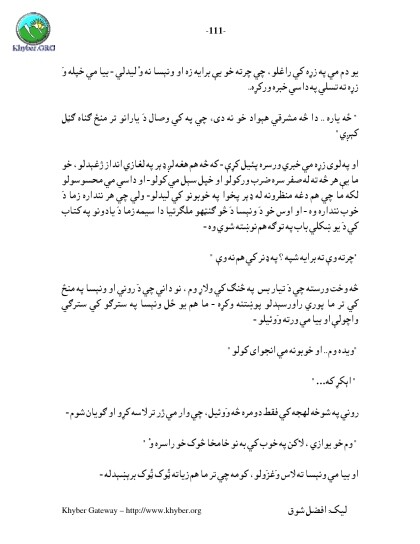 -111-
Khyber.ORG
يو دم مي په زړه کي راغلو ، چي چرته خو يې برايه زه او ونېسا نه وُ ليدلي - بيا مي خپله وَ
زړه ته تسلي په داسي خبره ورکړه..
" څه ياره .. دا څه مشرقي هېواد خو نه دی، چي په کي وصال دَ يارانو تر منځ ګناه ګڼل
کېږي "
او په لوی زړه مي خبري ورسره پئيل کړې - که څه هم هغه لږ ډېر په لغازي انداز ژغېدلو ، خو
ما يې هر څه ته له صفر سره ضرب ورکولو او خپل سېل مي کولو - او داسي مي محسوسولو
لکه ما چي هم دغه منظرونه له ډېر پخوا په خوبونو کي ليدلو - ولي چي هر نندار‎ه زما دَ
خوب ننداره وه - او اوس خو دَ ونېسا دَ څو ګنټهو ملګرتيا دا سيمه زما دَ يادونو په کتاب
کي دَ يو ښکلي باب په توګه هم نوښته شوي وه -
"چرته وې ته برايه شپه ؟ په ډنر کي هم نه وې "
څه وخت ورسته چي دَ تيار بس په څنګ کي ولاړ وم ، نو داني چي دَ روني او ونېسا په منځ
کي تر ما پوري راورسېدلو پوښتنه وکړه - ما هم يو ځل ونېسا په سترګو کي سترګي
واچولې او بيا مي ورته وَوئيلو -
"ويده وم .. او خوبونه مي انجوای کولو "
" ابکړکه... "
روني په شوخه لهجه کي فقط دومره څه وَوئيل، چي وار مي ژر تر لاسه کړو او ګويان شوم -
"وم خو يوازي ، لاکن په خوب کي به نو خامخا څوک خو راسره وُ "
او بيا مي ونېسا ته لاس وَغزولو ، کومه چي تر ما هم زياته ټُوک ټُوک برېښېدله -
ليک: افضل شوق
Khyber Gateway – http://www.khyber.org